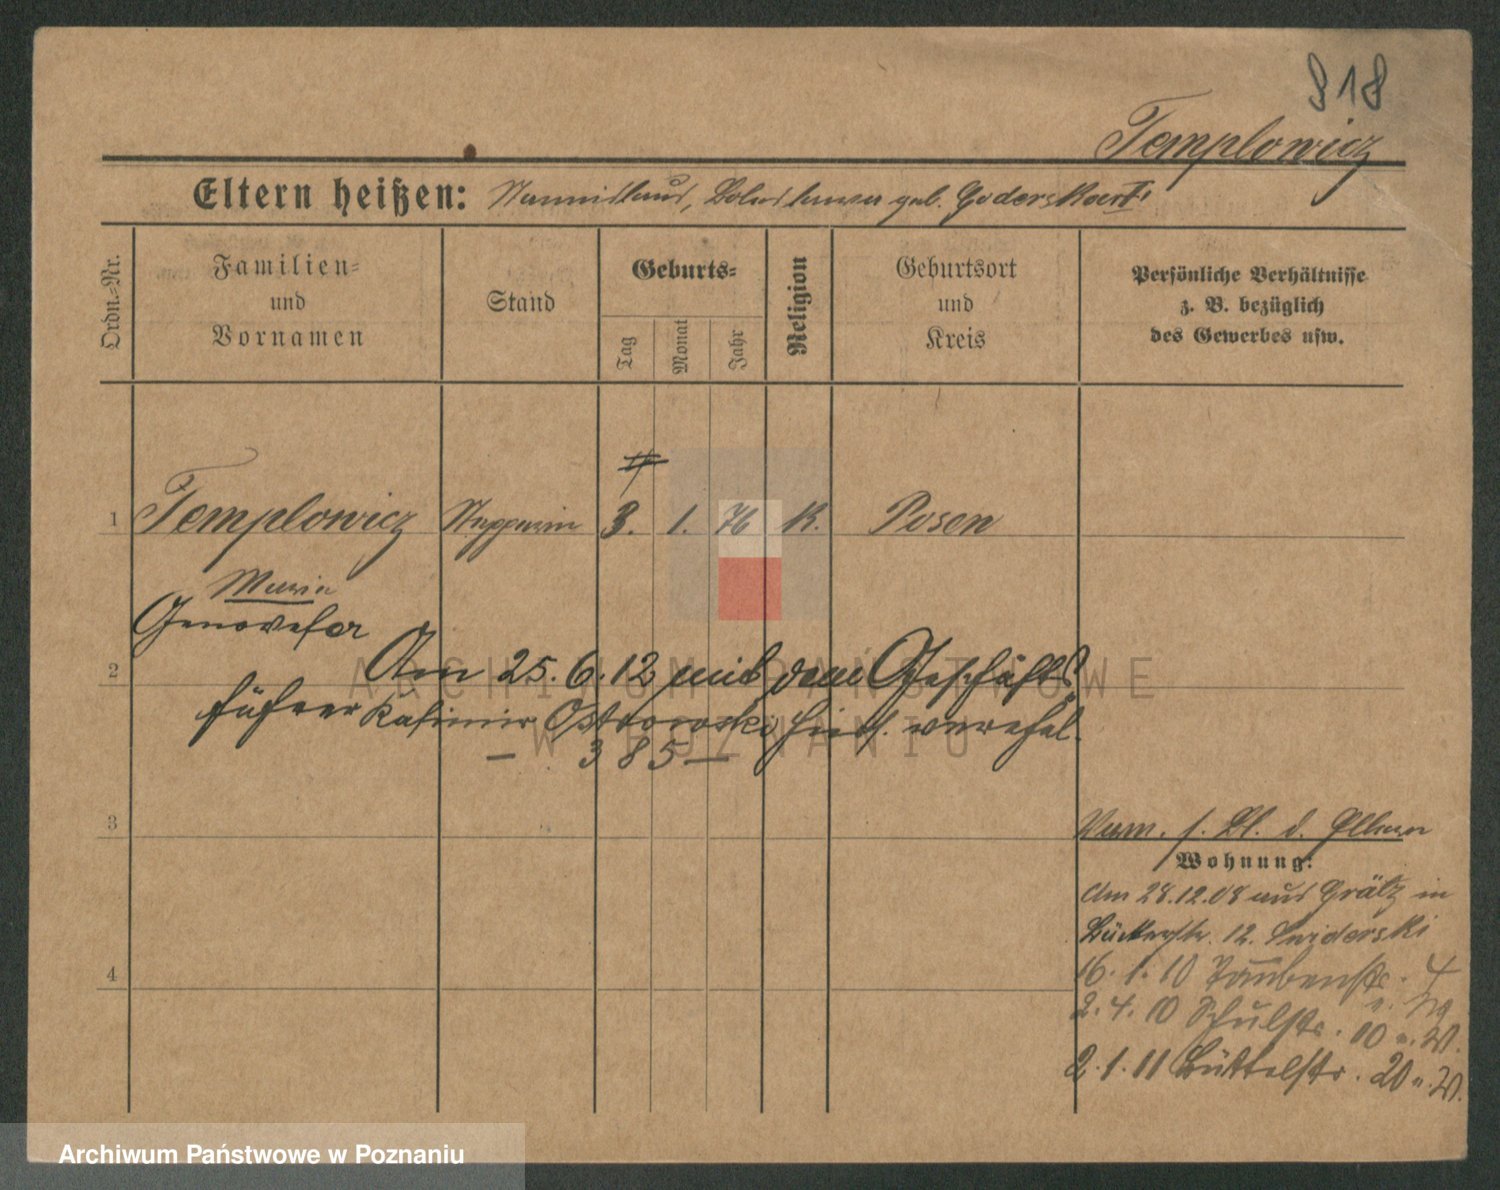 818
Templowicz
Eltern heißen: Stanislaus, geb.
Ordn.-Nr.
Familien-
und
Vornamen
Stand
Geburts-
Tag
Monat
Jahr
Religion
Geburtsort
und
Kreis
Persönliche Verhältnisse
z. B. bezüglich
des Gewerbes usw.
1 Templowicz 3. 1. 76 K. Posen
Maria
Genovefa
2 Am 25.6.12 mit dem Geschäfts
führer Kasimir Ostrowski hies. verehel.
— 385 —
3
d. Eltern
Wohnung:
Am 28.12.08 aus Grätz in
12.
16.1.10 Taubenstr. 4
2.4.10 Schulstr. 10 n. W.
2.1.11 Büttelstr. 20 n. W.
4
ARCHIWUM PAŃSTWOWE
W POZNANIU
Archiwum Państwowe w Poznaniu